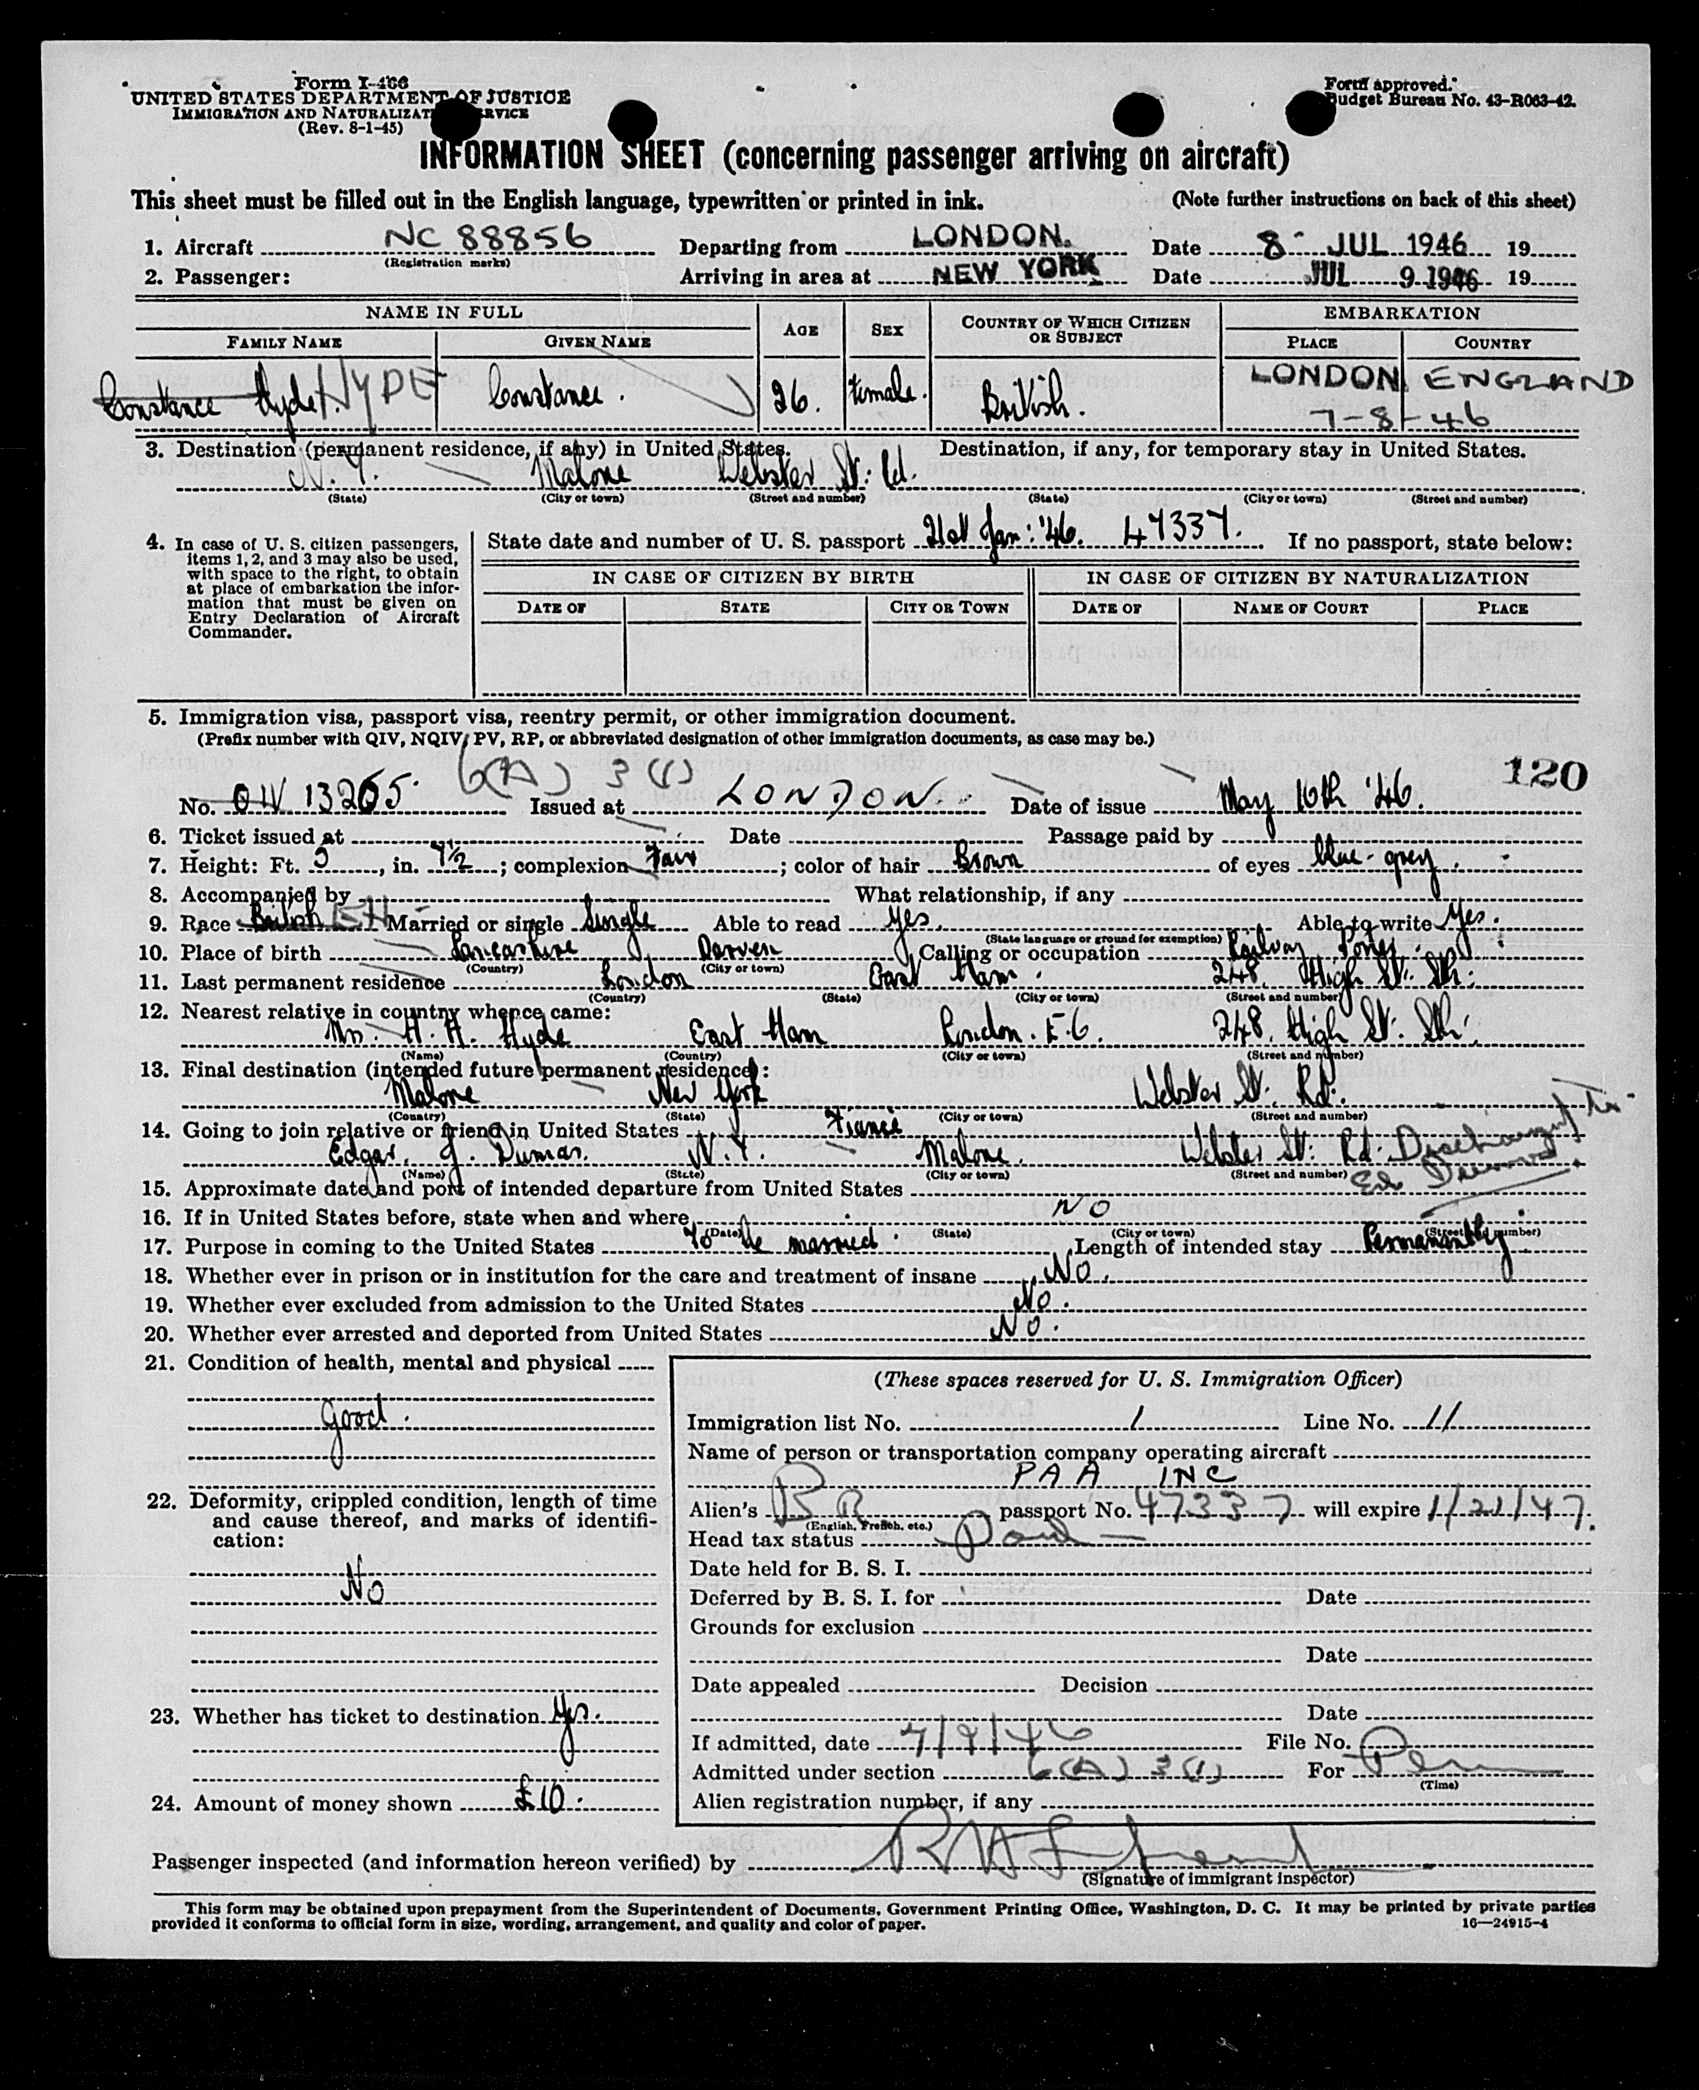 Form I-466
UNITED STATES DEPARTMENT OF JUSTICE
IMMIGRATION AND NATURALIZATION SERVICE
(Rev. 8-1-45)
Form approved.
Budget Bureau No. 43-R063-42.
INFORMATION SHEET (concerning passenger arriving on aircraft)
This sheet must be filled out in the English language, typewritten or printed in ink. (Note further instructions on back of this sheet)
1. Aircraft NC 88856 Departing from LONDON. Date 8 - JUL 1946 19
(Registration marks)
2. Passenger: Arriving in area at NEW YORK Date JUL 9 1946 19
NAME IN FULL AGE SEX COUNTRY OF WHICH CITIZEN OR SUBJECT EMBARKATION
FAMILY NAME GIVEN NAME PLACE COUNTRY
Constance Hyde HYDE Constance. 26. Female. British. LONDON ENGLAND
7-8-46
3. Destination (permanent residence, if any) in United States. Destination, if any, for temporary stay in United States.
N.Y. Malone Webster St: Rd.
(State) (City or town) (Street and number) (State) (City or town) (Street and number)
4. In case of U. S. citizen passengers, items 1, 2, and 3 may also be used, with space to the right, to obtain at place of embarkation the information that must be given on Entry Declaration of Aircraft Commander.
State date and number of U. S. passport 21st Jan: '46. 47337. If no passport, state below:
IN CASE OF CITIZEN BY BIRTH IN CASE OF CITIZEN BY NATURALIZATION
DATE OF STATE CITY OR TOWN DATE OF NAME OF COURT PLACE
5. Immigration visa, passport visa, reentry permit, or other immigration document.
(Prefix number with QIV, NQIV, PV, RP, or abbreviated designation of other immigration documents, as case may be.)
6(A) 3(1) 120
No. QIV 13265 Issued at LONDON. Date of issue May 10th '46.
6. Ticket issued at Date Passage paid by
7. Height: Ft. 5, in. 4½; complexion Fair; color of hair Brown of eyes blue-grey.
8. Accompanied by What relationship, if any
9. Race British EH Married or single Single Able to read Yes. Able to write Yes.
(State language or ground for exemption)
10. Place of birth Lancashire Darwen Calling or occupation Railway Porter.
(Country) (City or town)
11. Last permanent residence London East Ham. 248, High St: Sth:
(Country) (State) (City or town) (Street and number)
12. Nearest relative in country whence came:
Mrs. H. H. Hyde East Ham London. E-6. 248, High St: Sth:
(Name) (Country) (City or town) (Street and number)
13. Final destination (intended future permanent residence):
Malone New York Webster St. Rd:
(Country) (State) (City or town) (Street and number)
14. Going to join relative or friend in United States Fiancé
Edgar. J. Dumas. N.Y. Malone. Webster St: Rd.
(Name) (State) (City or town) (Street and number)
15. Approximate date and port of intended departure from United States
16. If in United States before, state when and where NO
(Date) (State) (City or town) (Street and number)
17. Purpose in coming to the United States To be married. Length of intended stay Permanantly.
18. Whether ever in prison or in institution for the care and treatment of insane No.
19. Whether ever excluded from admission to the United States No.
20. Whether ever arrested and deported from United States No.
21. Condition of health, mental and physical
Good.
22. Deformity, crippled condition, length of time and cause thereof, and marks of identification:
No
23. Whether has ticket to destination Yes.
24. Amount of money shown £10.
(These spaces reserved for U. S. Immigration Officer)
Immigration list No. 1 Line No. 11
Name of person or transportation company operating aircraft
PAA INC
Alien's BR passport No. 47337 will expire 1/21/47.
(English, French, etc.)
Head tax status Paid
Date held for B. S. I.
Deferred by B. S. I. for Date
Grounds for exclusion
Date
Date appealed Decision
Date
If admitted, date 7/9/46 File No.
Admitted under section 6(A) 3(1) For Perm
(Time)
Alien registration number, if any
Passenger inspected (and information hereon verified) by
(Signature of immigrant inspector)
This form may be obtained upon prepayment from the Superintendent of Documents, Government Printing Office, Washington, D. C. It may be printed by private parties
provided it conforms to official form in size, wording, arrangement, and quality and color of paper. 16—24915-4